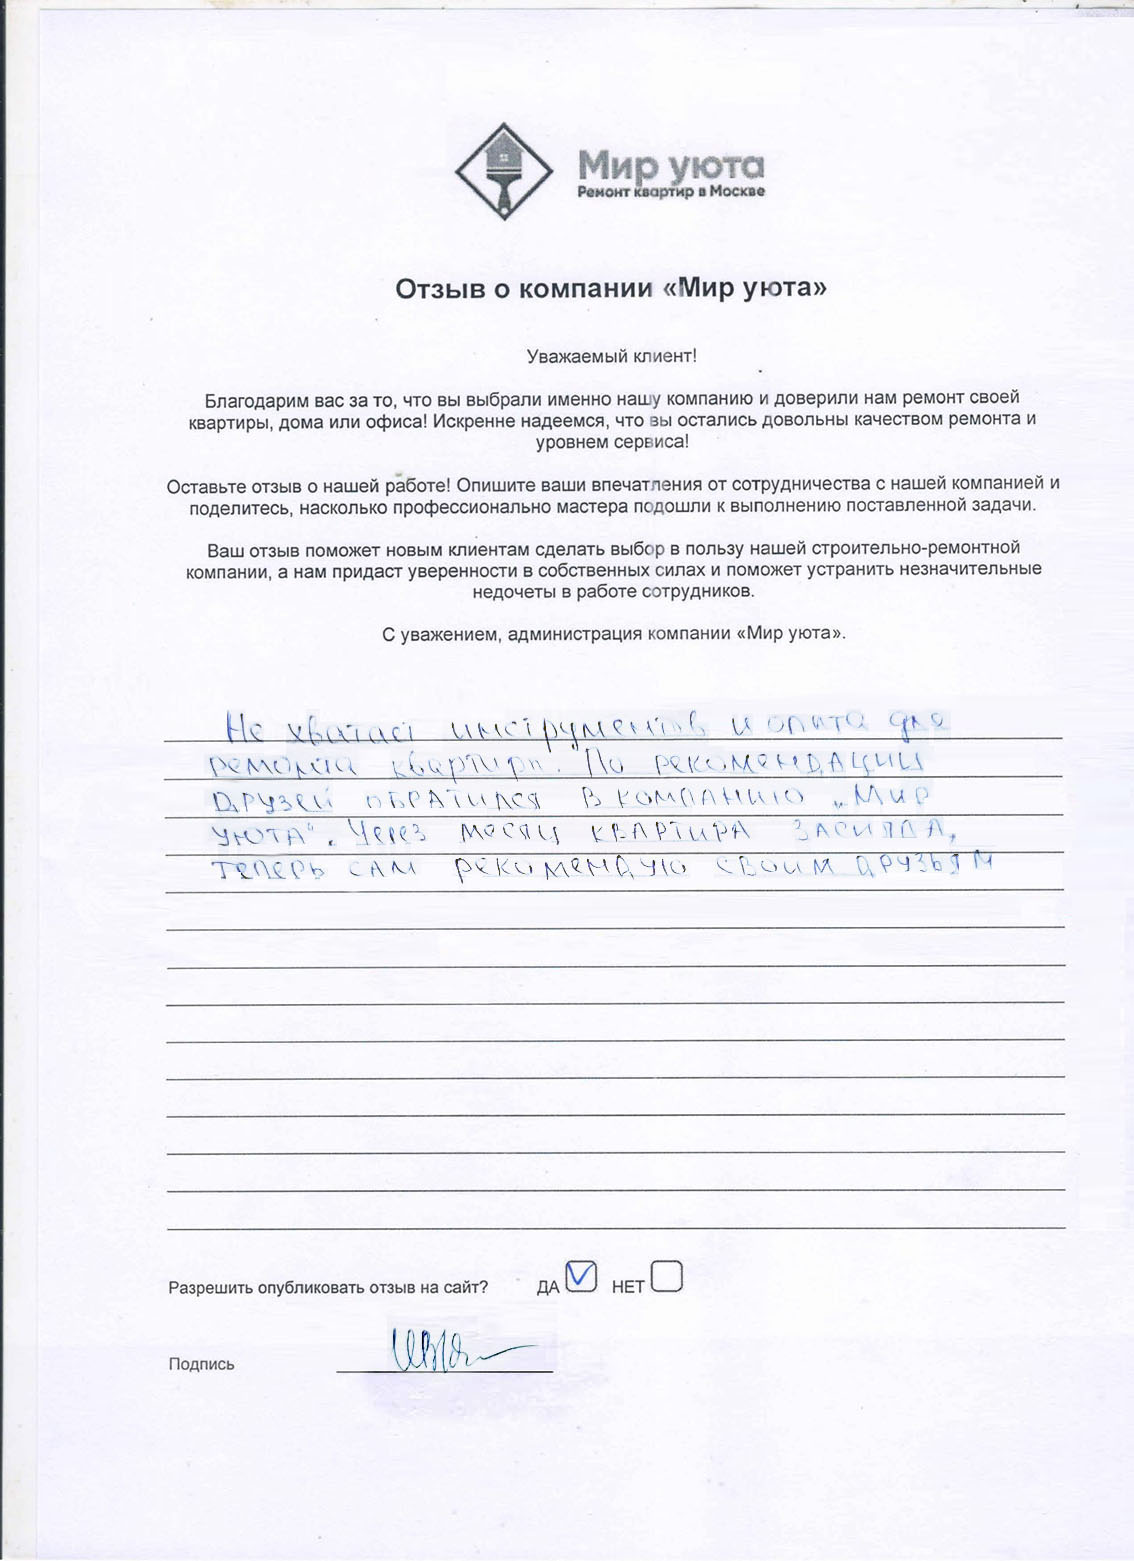 Мир уюта
Ремонт квартир в Москве
Отзыв о компании «Мир уюта»
Уважаемый клиент!
Благодарим вас за то, что вы выбрали именно нашу компанию и доверили нам ремонт своей
квартиры, дома или офиса! Искренне надеемся, что вы остались довольны качеством ремонта и
уровнем сервиса!
Оставьте отзыв о нашей работе! Опишите ваши впечатления от сотрудничества с нашей компанией и
поделитесь, насколько профессионально мастера подошли к выполнению поставленной задачи.
Ваш отзыв поможет новым клиентам сделать выбор в пользу нашей строительно-ремонтной
компании, а нам придаст уверенности в собственных силах и поможет устранить незначительные
недочеты в работе сотрудников.
С уважением, администрация компании «Мир уюта».
Не инструментов и опыта для
ремонта квартиры. По рекомендации
друзей обратился в компанию „Мир
уюта". Через месяц квартира засияла,
теперь сам рекомендую своим друзьям
Разрешить опубликовать отзыв на сайт? ДА НЕТ
Подпись